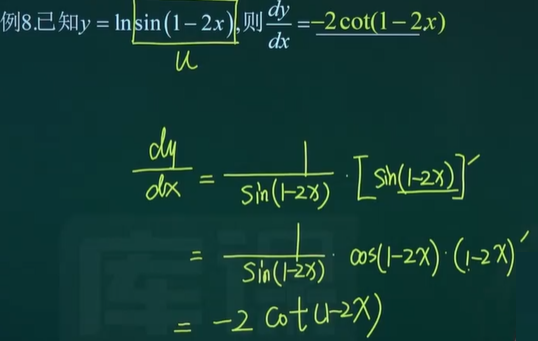 例8.已知y = ln sin(1-2x),则dy/dx = -2cot(1-2x)
u
dy/dx = 1/sin(1-2x) · [sin(1-2x)]′
= 1/sin(1-2x) · cos(1-2x) · (1-2x)′
= -2 cot(1-2x)
库课